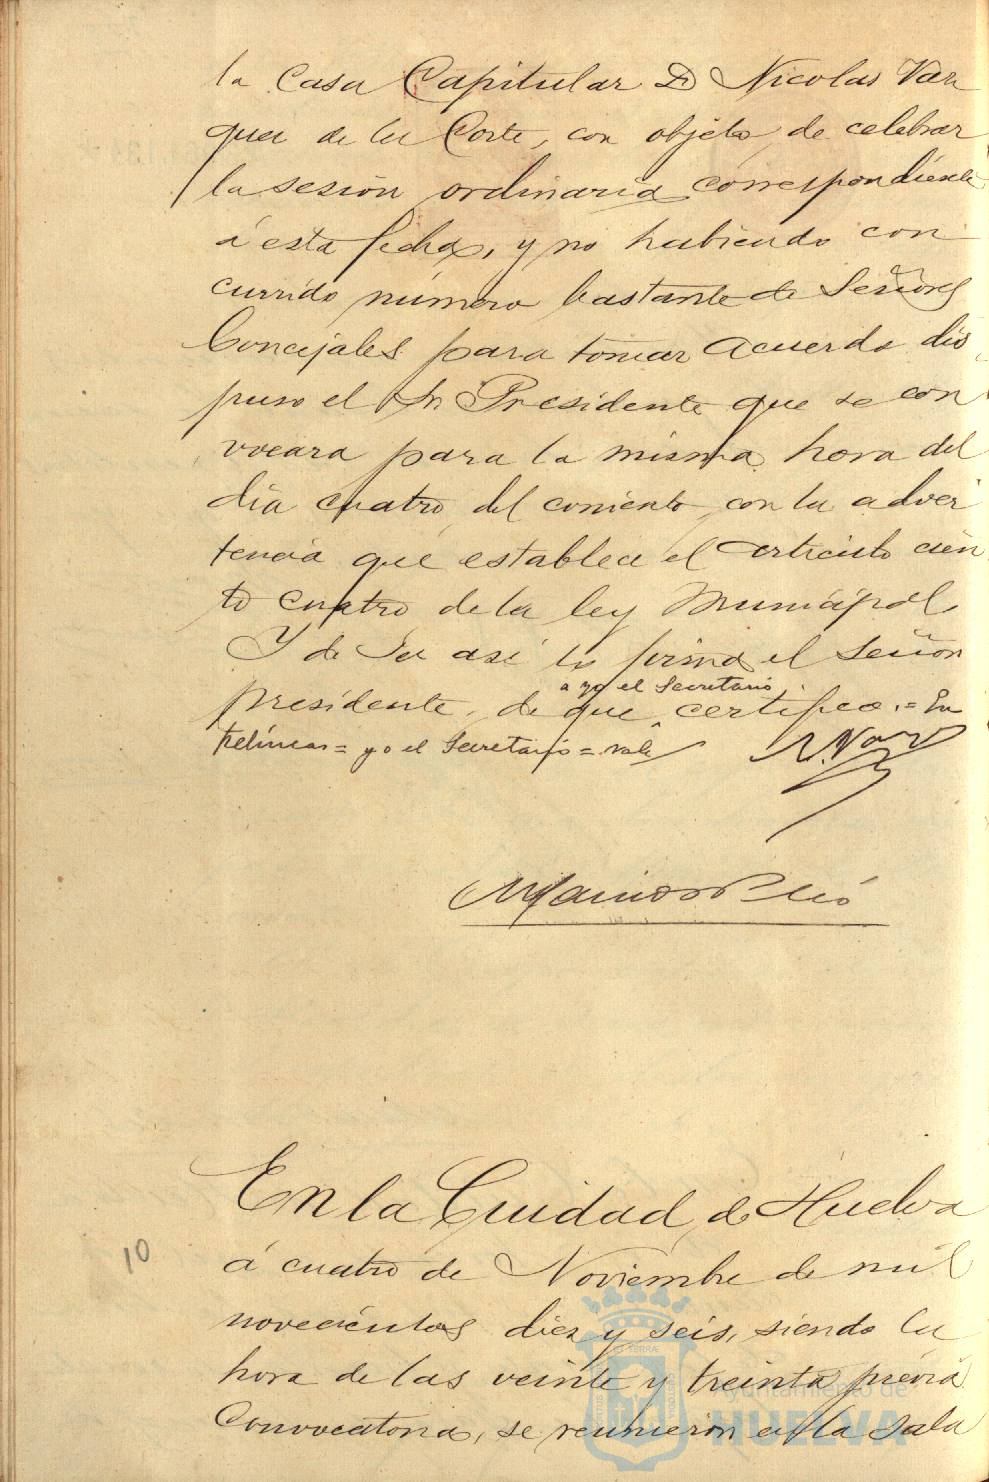 la Casa Capitular D Nicolas Vaz
quez de la Corte, con objeto de celebrar
la sesión ordinaria correspondiente
á esta fecha, y no habiendo con
currido número bastante de Señores
Concejales para tomar acuerdo dis
puso el Sr Presidente que se con
vocara para la misma hora del
dia cuatro del corriente con la adver
tencia que establece el articulo cien
to cuatro de la ley Municipal
Y de ser asi lo firma el Señor
yo el Secretario
presidente, de que certifico.= En
trelíneas = yo el Secretario = vale
10
En la Cuidad de Huelva
á cuatro de Noviembre de mil
novecientos diez y seis, siendo la
hora de las veinte y treinta previa
Convocatoria, se reunieron en la Sala
Ayuntamiento de
HUELVA